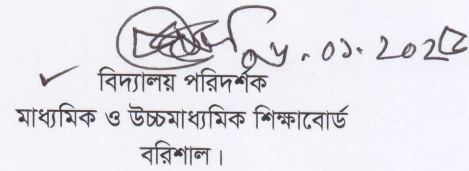 বিদ্যালয় পরিদর্শক
মাধ্যমিক ও উচ্চমাধ্যমিক শিক্ষাবোর্ড
বরিশাল।